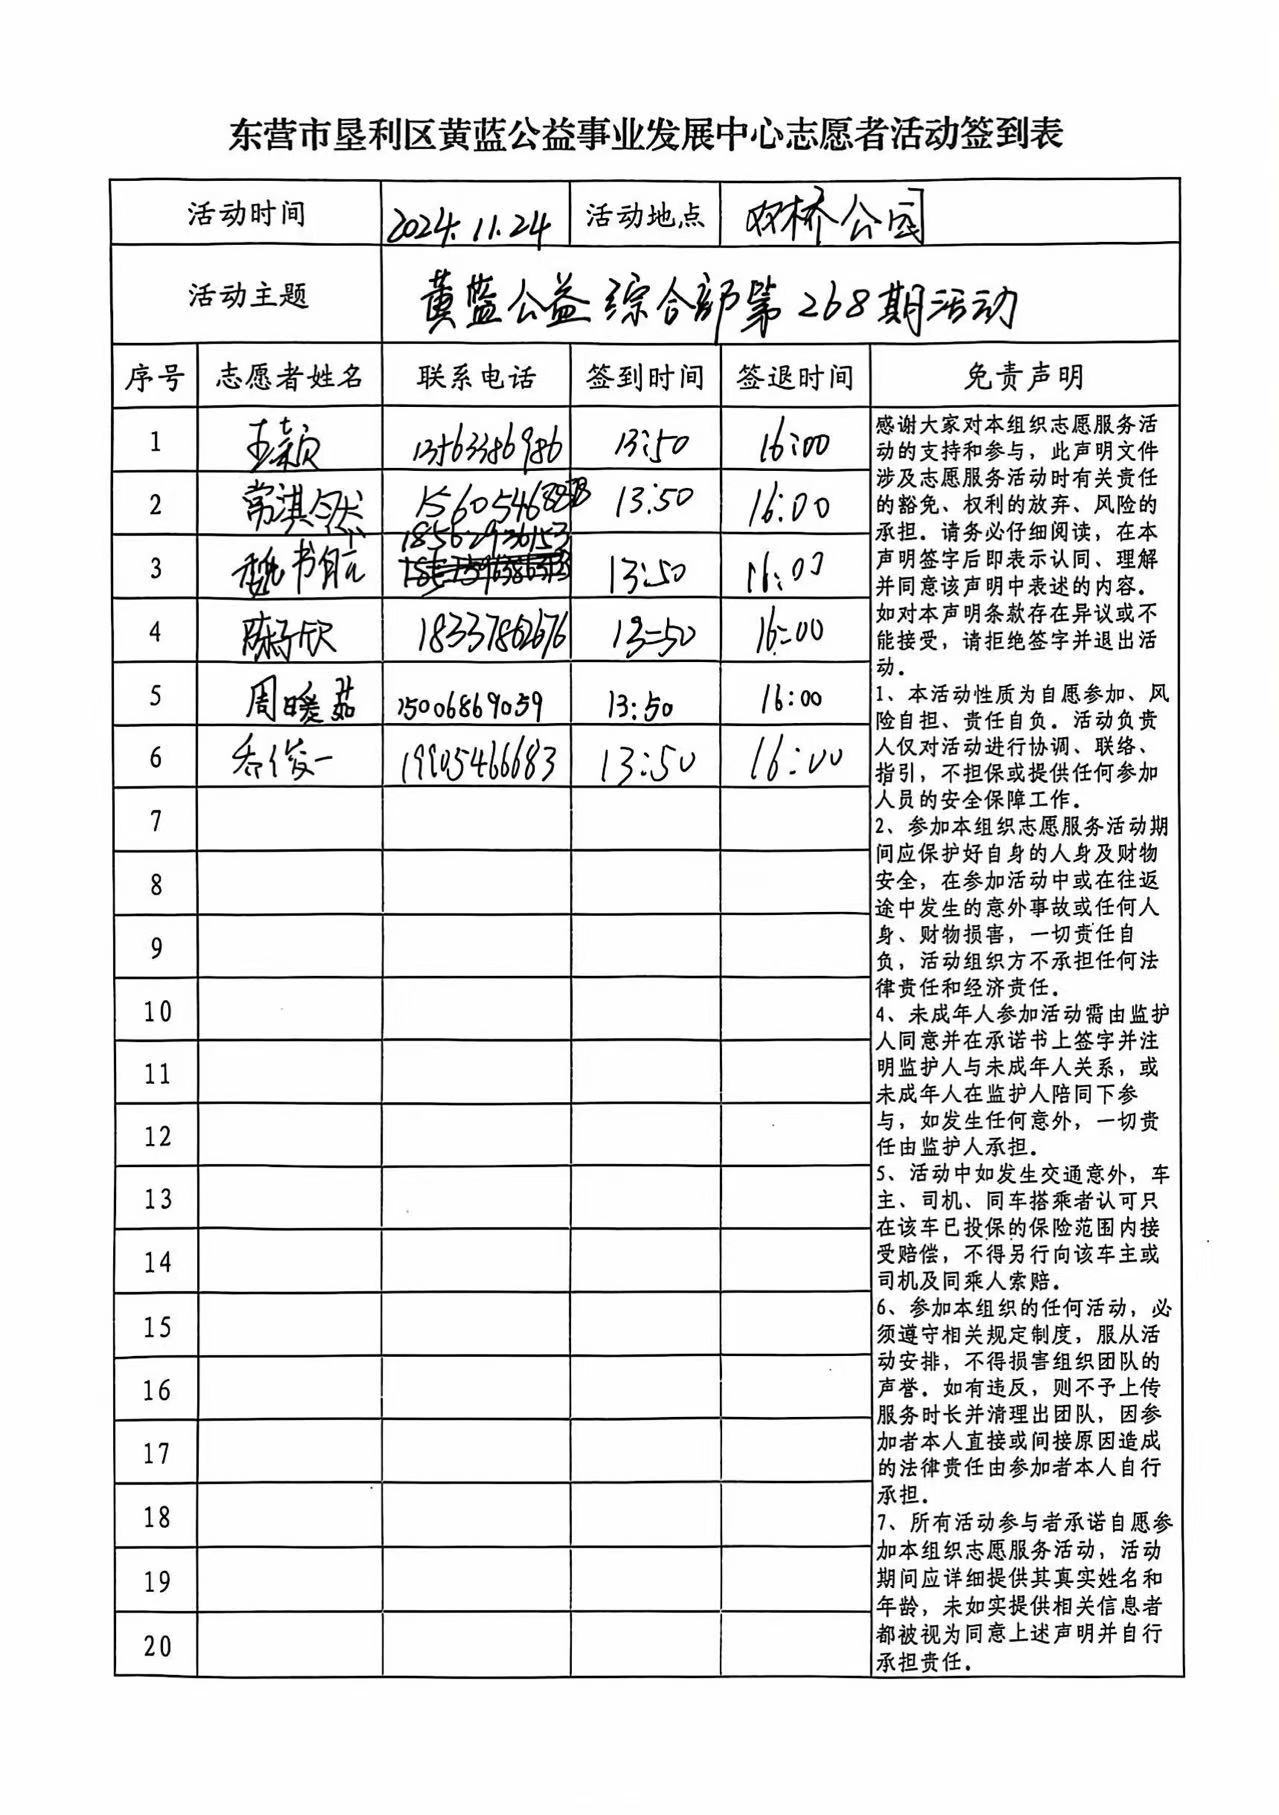 东营市垦利区黄蓝公益事业发展中心志愿者活动签到表
活动时间 2024.11.24 活动地点 双桥公园
活动主题 黄蓝公益综合部第268期活动
序号 志愿者姓名 联系电话 签到时间 签退时间 免责声明
1 王颖 13563386986 13:50 16:00
2 常淇 13:50 16:00
3 魏书 18562936153 13:50 16:00
4 陈子欣 18337862676 13:50 16:00
5 周暖茹 15006869059 13:50 16:00
6 乔俊一 19905466683 13:50 16:00
7
8
9
10
11
12
13
14
15
16
17
18
19
20
感谢大家对本组织志愿服务活
动的支持和参与，此声明文件
涉及志愿服务活动时有关责任
的豁免、权利的放弃、风险的
承担。请务必仔细阅读，在本
声明签字后即表示认同、理解
并同意该声明中表述的内容。
如对本声明条款存在异议或不
能接受，请拒绝签字并退出活
动。
1、本活动性质为自愿参加、风
险自担、责任自负。活动负责
人仅对活动进行协调、联络、
指引，不担保或提供任何参加
人员的安全保障工作。
2、参加本组织志愿服务活动期
间应保护好自身的人身及财物
安全，在参加活动中或在往返
途中发生的意外事故或任何人
身、财物损害，一切责任自
负，活动组织方不承担任何法
律责任和经济责任。
4、未成年人参加活动需由监护
人同意并在承诺书上签字并注
明监护人与未成年人关系，或
未成年人在监护人陪同下参
与，如发生任何意外，一切责
任由监护人承担。
5、活动中如发生交通意外，车
主、司机、同车搭乘者认可只
在该车已投保的保险范围内接
受赔偿，不得另行向该车主或
司机及同乘人索赔。
6、参加本组织的任何活动，必
须遵守相关规定制度，服从活
动安排，不得损害组织团队的
声誉。如有违反，则不予上传
服务时长并清理出团队，因参
加者本人直接或间接原因造成
的法律责任由参加者本人自行
承担。
7、所有活动参与者承诺自愿参
加本组织志愿服务活动，活动
期间应详细提供其真实姓名和
年龄，未如实提供相关信息者
都被视为同意上述声明并自行
承担责任。